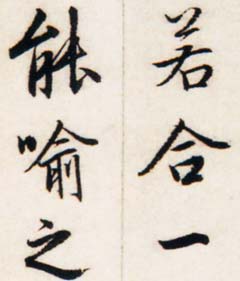 若合一
能喻之